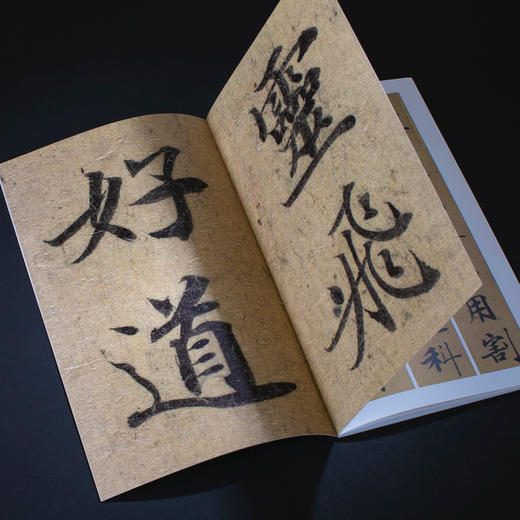 靈飛
好道
用割
科